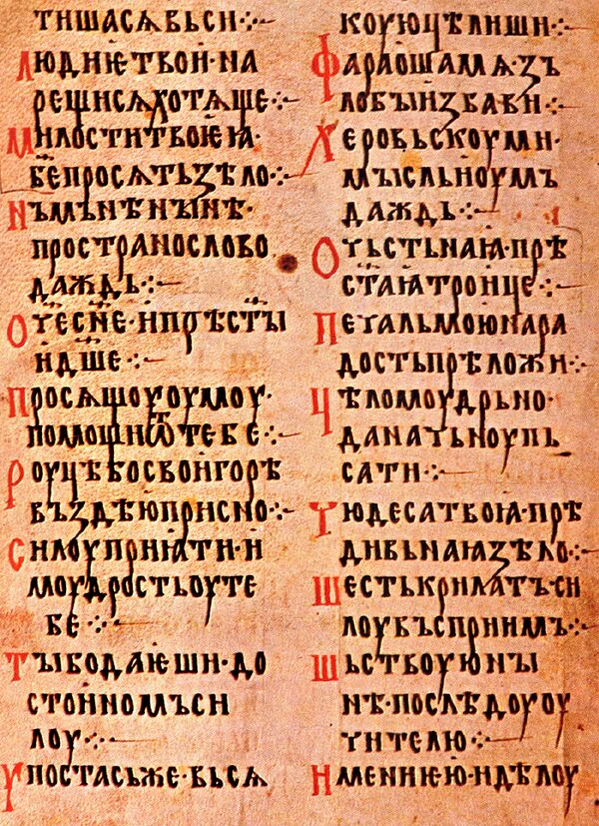 тишасѧ вьси ·:~
людиѥ твои · на
рещисѧ хотѧще ·:~
милости твоѥꙗ ·
б҃е просѧть зѣло ·:~
нъ мънѣ нынѣ ·
пространо слово
даждь ·:~
оч҃е сн҃е · и прѣст҃ыи
и д҃ше ·:~
просѧщоуоумоу ·
помощи ѿ тебе ·:~
роуцѣ бо свои горѣ
въздѣю присно ·:~
силоу приꙗти · и
моудрость оу те
бе ·:~
ты бо даѥши · до
стоиномъ си
лоу ·:~
упостась же · вьсѧ
коую цѣлиши ·:~
фараоша мѧ зъ
лобы избави ·:~
херовьскоу ми ·
мысль и оумъ
даждь ·:~
о чьстьнаꙗ · прѣ
ст҃аꙗ троице ·:~
печаль мою на ра
дость прѣложи ·:~
цѣломоудрьно ·
да начьноу пь
сати ·:~
чюдеса твоꙗ · прѣ
дивьнаꙗ зѣло ·:~
шестькрилатъ си
лоу въсприимъ ·:~
шьствоую ны
нѣ · по слѣдоу оу
чителю ·:~
имении ѥю · и дѣлоу